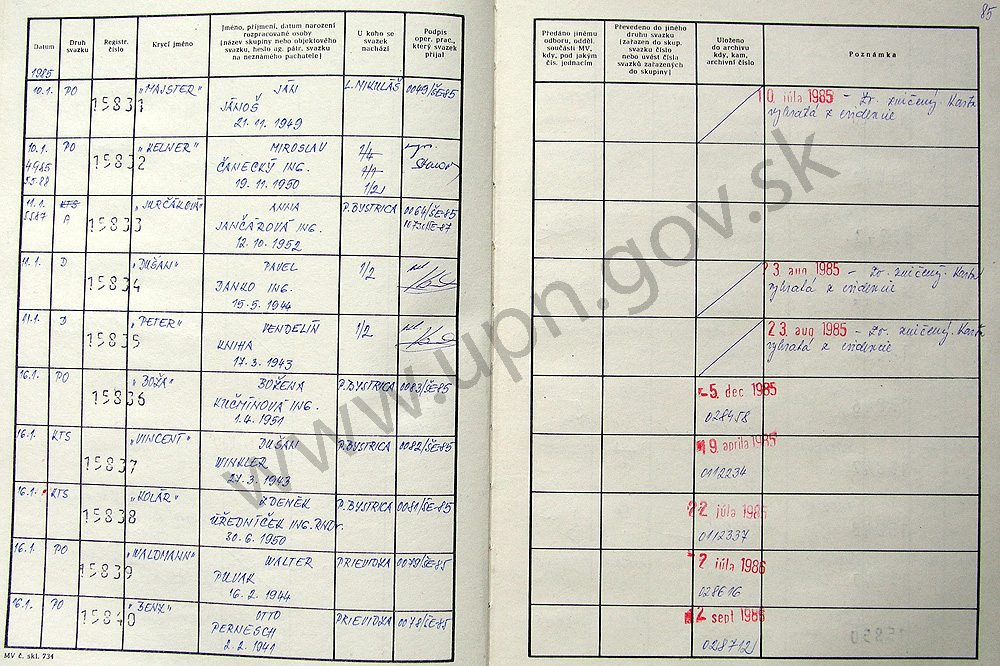 85
Datum
Druh svazku
Registr. číslo
Krycí jméno
Jméno, příjmení, datum narození
rozpracované osoby
(název skupiny nebo objektového
svazku, heslo ag. pátr. svazku
na neznámého pachatele)
U koho se
svazek
nachází
Podpis
oper. prac.,
který svazek
přijal
Předáno jinému
odboru, odděl.
součásti MV,
kdy, pod jakým
čís. jednacím
Převedeno do jiného
druhu svazku
(zařazen do skup.
svazku číslo
nebo uvést čísla
svazků zařazených
do skupiny)
Uloženo
do archivu
kdy, kam,
archivní číslo
Poznámka
1985
10.1. PO 15831 „MAJSTER" JÁN L. MIKULÁŠ 0049/ŠE-85
JÁNOŠ
21. 11. 1949
10. júla 1985 – Zv. zničený. Karta
vybratá z evidencie
10.1. PO 15832 „KELNER" MIROSLAV 1/4
ČANECKÝ ING.
19. 11. 1950 1/2
11.1. KTS 15833 ANNA P. BYSTRICA 0064/ŠE-85
A JANČÁROVÁ ING.
12. 10. 1952
11.1. D 15834 „DUŠAN" PAVEL 1/2
DANKO ING.
15. 5. 1944
23. aug 1985 – Zv. zničený. Karta
vybratá z evidencie
11.1. D 15835 „PETER" VENDELÍN 1/2
KNIHA
17. 3. 1943
23. aug 1985 – Zv. zničený. Karta
vybratá z evidencie
16.1. PO 15836 „BOŽA" BOŽENA P. BYSTRICA 0083/ŠE-85
KUČMÍNOVÁ ING.
1. 4. 1951
-5. dec. 1985
028458
16.1. KTS 15837 „VINCENT" DUŠAN P. BYSTRICA 0082/ŠE-85
WINKLER
27. 3. 1943
19. apríla 1985
0112234
16.1. KTS 15838 „KOLÁR" ZDENĚK P. BYSTRICA 0081/ŠE-85
ÚŘEDNÍČEK ING. RNDr.
30. 6. 1950
22. júla 1985
0112337
16.1. PO 15839 „WALDMANN" WALTER PRIEVIDZA 0079/ŠE-85
PILVAK
16. 2. 1944
2 júla 1986
028616
16.1. PO 15840 „BENZ" OTTO PRIEVIDZA 0078/ŠE-85
PERNESCH
2. 2. 1941
2 sept 1986
028712
MV č. skl. 734
www.upn.gov.sk